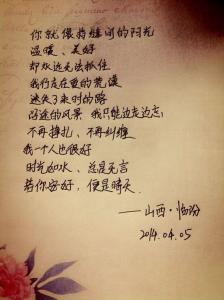 你就像指缝间的阳光
温暖、美好
却永远无法抓住
我行走在爱的荒漠
迷失了来时的路
沿途的风景 我只能边走边忘
不再挣扎、不再纠缠
我一个人也很好
时光如水、总是无言
若你安好、便是晴天
——山西·临汾
2014.04.05